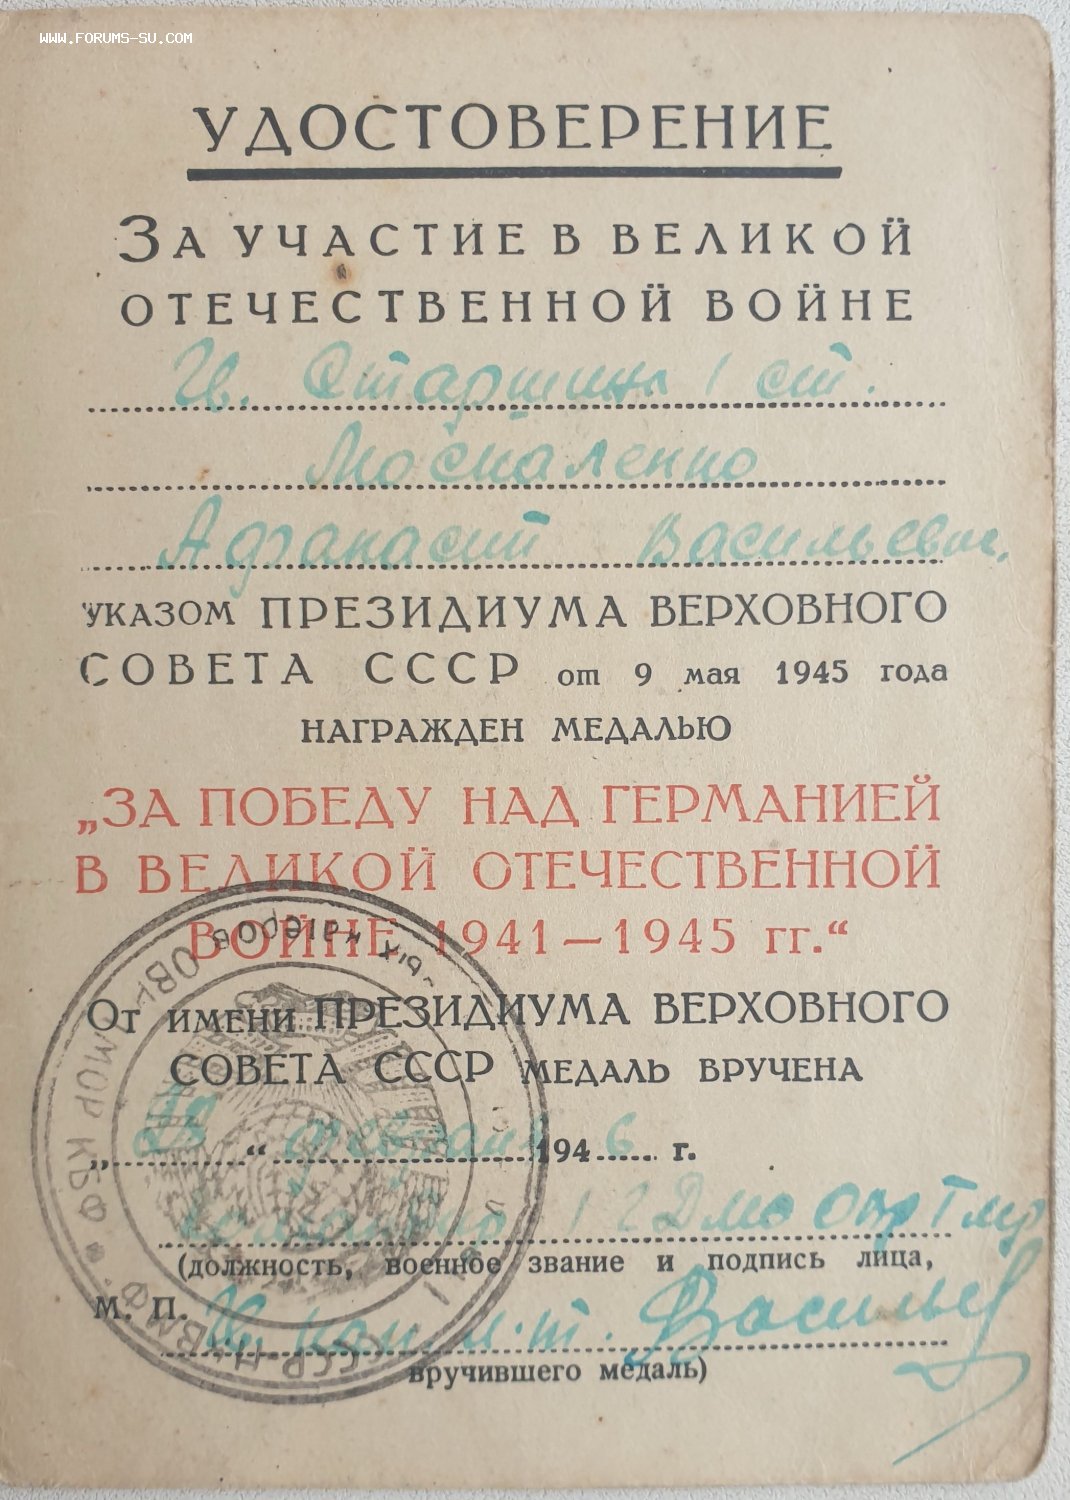 WWW.FORUMS-SU.COM
УДОСТОВЕРЕНИЕ
ЗА УЧАСТИЕ В ВЕЛИКОЙ
ОТЕЧЕСТВЕННОЙ ВОЙНЕ
Гв. Старшина 1 ст.
Москаленко
Афанасий Васильевич
УКАЗОМ ПРЕЗИДИУМА ВЕРХОВНОГО
СОВЕТА СССР от 9 мая 1945 года
НАГРАЖДЕН МЕДАЛЬЮ
„ЗА ПОБЕДУ НАД ГЕРМАНИЕЙ
В ВЕЛИКОЙ ОТЕЧЕСТВЕННОЙ
ВОЙНЕ 1941—1945 гг.“
ОТ ИМЕНИ ПРЕЗИДИУМА ВЕРХОВНОГО
СОВЕТА СССР МЕДАЛЬ ВРУЧЕНА
„28“ февраля 1946 г.
1 г
(должность, военное звание и подпись лица,
М. П. Гв. кап. л-т. Васильев
вручившего медаль)
СССР-Н
ВМФ
КБФ